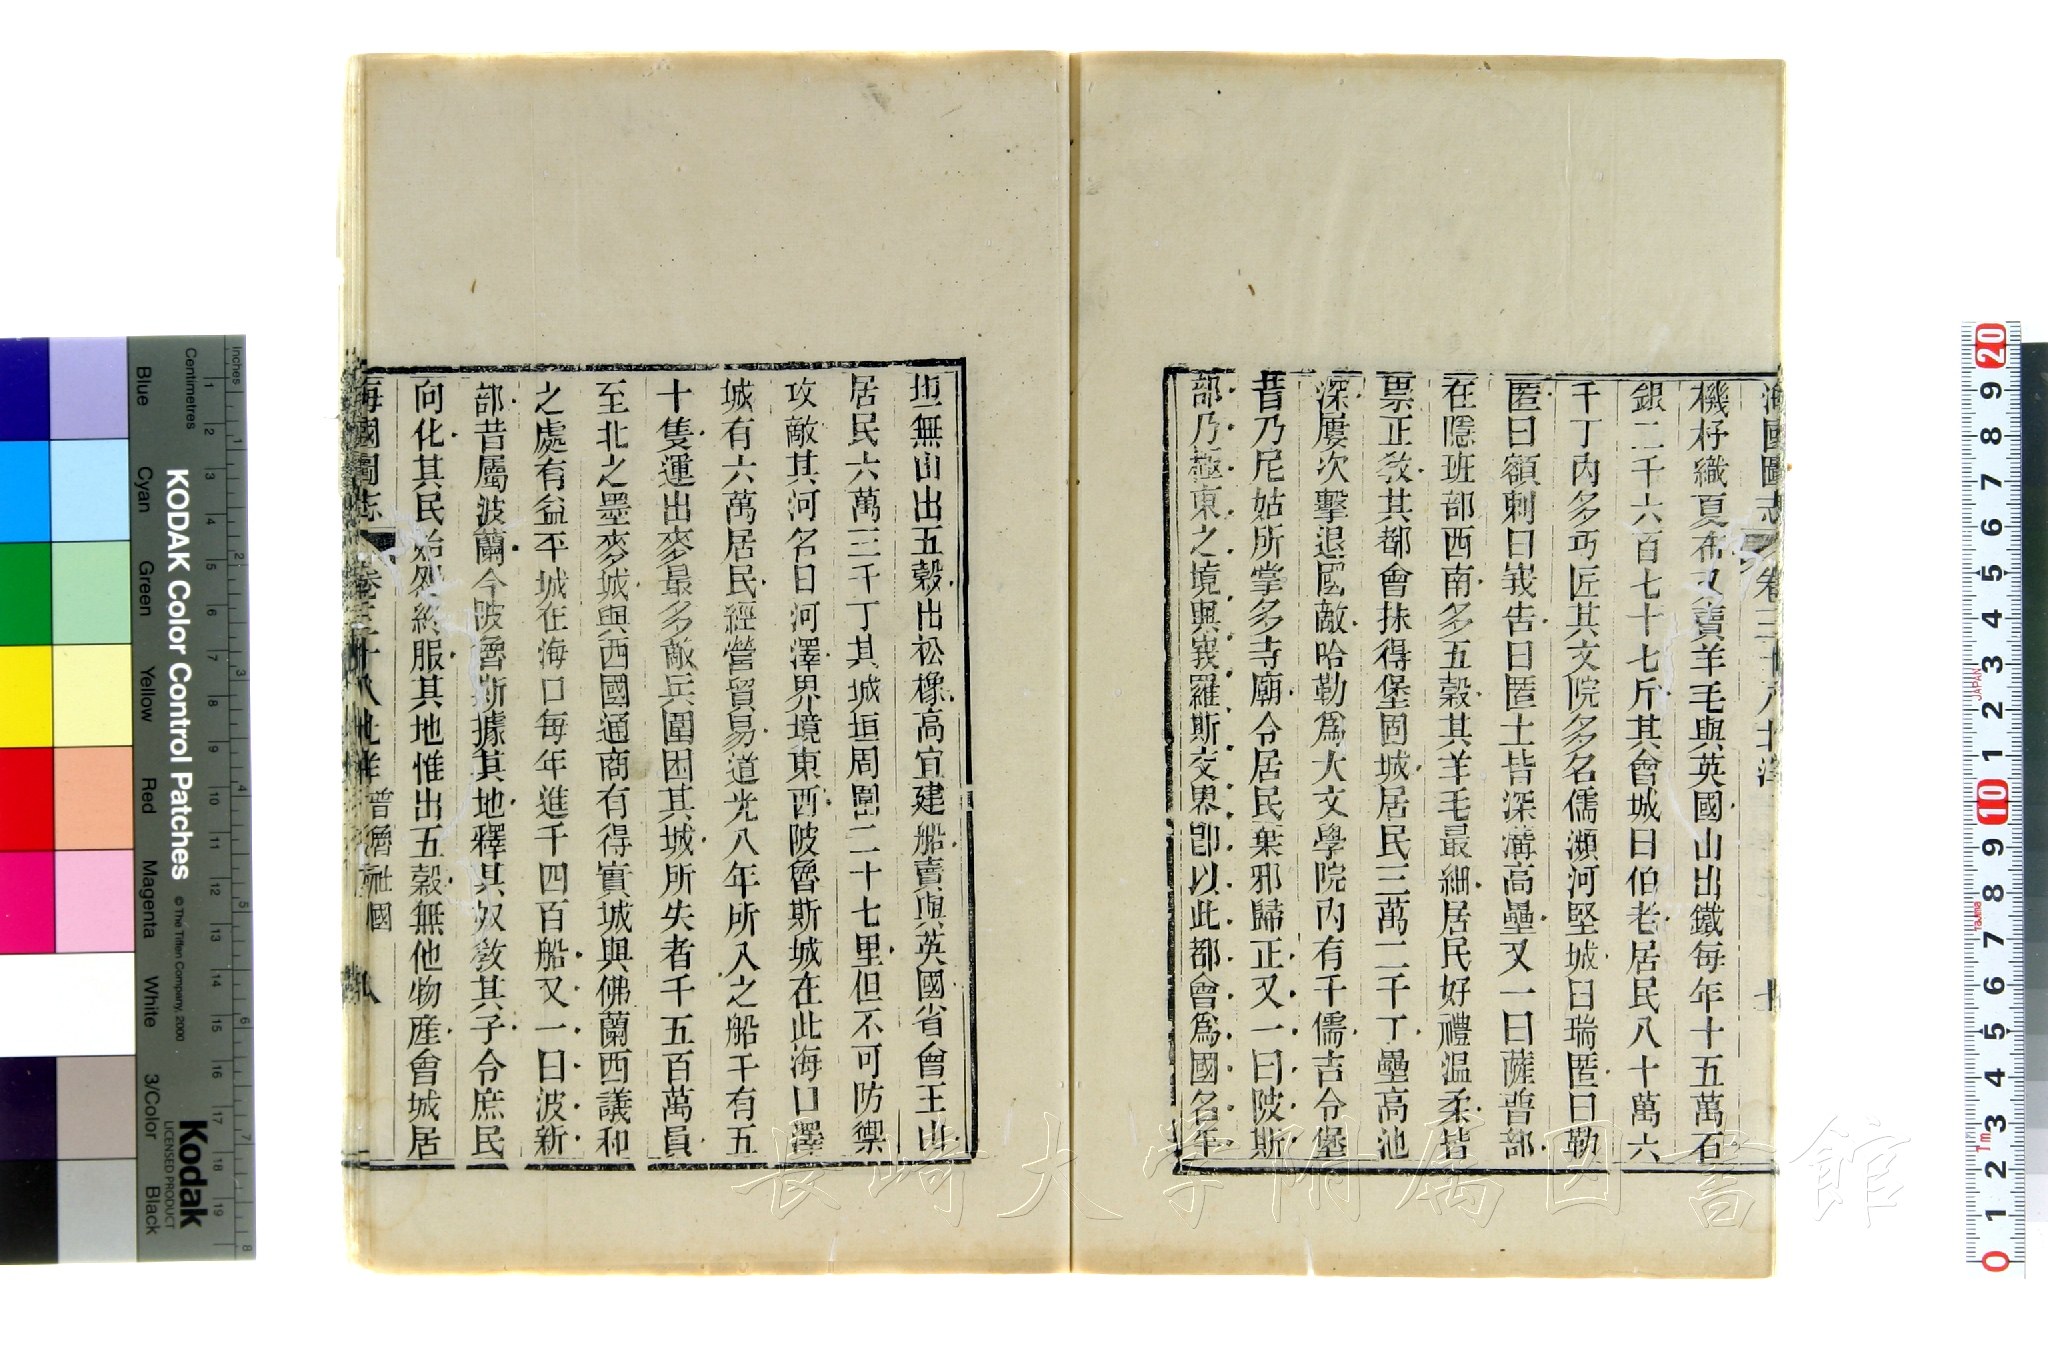 海國圖志 卷三十八 北洋
機杼織夏布又賣羊毛與英國山出鐵每年十五萬石
銀二千六百七十七斤其會城曰伯老居民八十萬六
千丁內多巧匠其文院多名儒瀕河堅城曰瑞匿曰勒
匿曰額刺曰峩告曰匿土皆深溝高壘又一曰薩普部
在隱班部西南多五穀其羊毛最細居民好禮温柔皆
票正教其都會抹得堡固城居民三萬二千丁壘高池
深屢次擊退國敵哈勒爲大文學院內有千儒吉令堡
昔乃尼姑所掌多寺廟令居民棄邪歸正又一曰陂斯
部乃極東之境與峩羅斯交界卽以此都會爲國名年
坦無山出五穀出松橡高宜建船賣與英國省會王山
居民六萬三千丁其城垣周圍二十七里但不可防禦
攻敵其河名曰河澤界境東西陂魯斯城在此海口澤
城有六萬居民經營貿易道光八年所入之船千有五
十隻運出麥最多敵兵圍困其城所失者千五百萬員
至北之墨麥城與西國通商有得實城與佛蘭西議和
之處有益平城在海口每年進千四百船又一曰波新
部昔屬波蘭今陂魯斯據其地釋其奴教其子令庶民
向化其民始怨終服其地惟出五穀無他物産會城居
海國圖志 卷三十八 北洋 普魯社國 八
KODAK Color Control Patches
© The Tiffen Company, 2000
Kodak
LICENSED PRODUCT
Inches
Centimetres
Blue
Cyan
Green
Yellow
Red
Magenta
White
3/Color
Black
長崎大学附属図書館
JAPAN